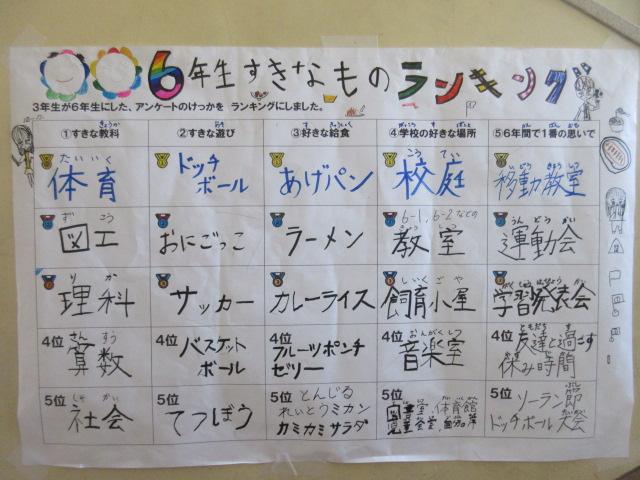 6年生すきなものランキング
3年生が6年生にした、アンケートのけっかを ランキングにしました。
①すきな教科 ②すきな遊び ③好きな給食 ④学校の好きな場所 ⑤6年間で1番の思いで
たいいく
体育
ドッチ
ボール
あげパン
こうてい
校庭
移動教室
ずこう
図工
おにごっこ
ラーメン
6-1,6-2などの
教室
うんどうかい
運動会
りか
理科
サッカー
カレーライス
しいくごや
飼育小屋
学習発表会
4位
さんすう
算数
4位
バスケット
ボール
4位
フルーツポンチ
ゼリー
4位
おんがくしつ
音楽室
4位
ともだち す
友達と過ごす
休み時間
5位
しゃかい
社会
5位
てつぼう
5位
とんじる
れいとうミカン
カミカミサラダ
5位
体育館
5位
ソーラン節
ドッチボール大会